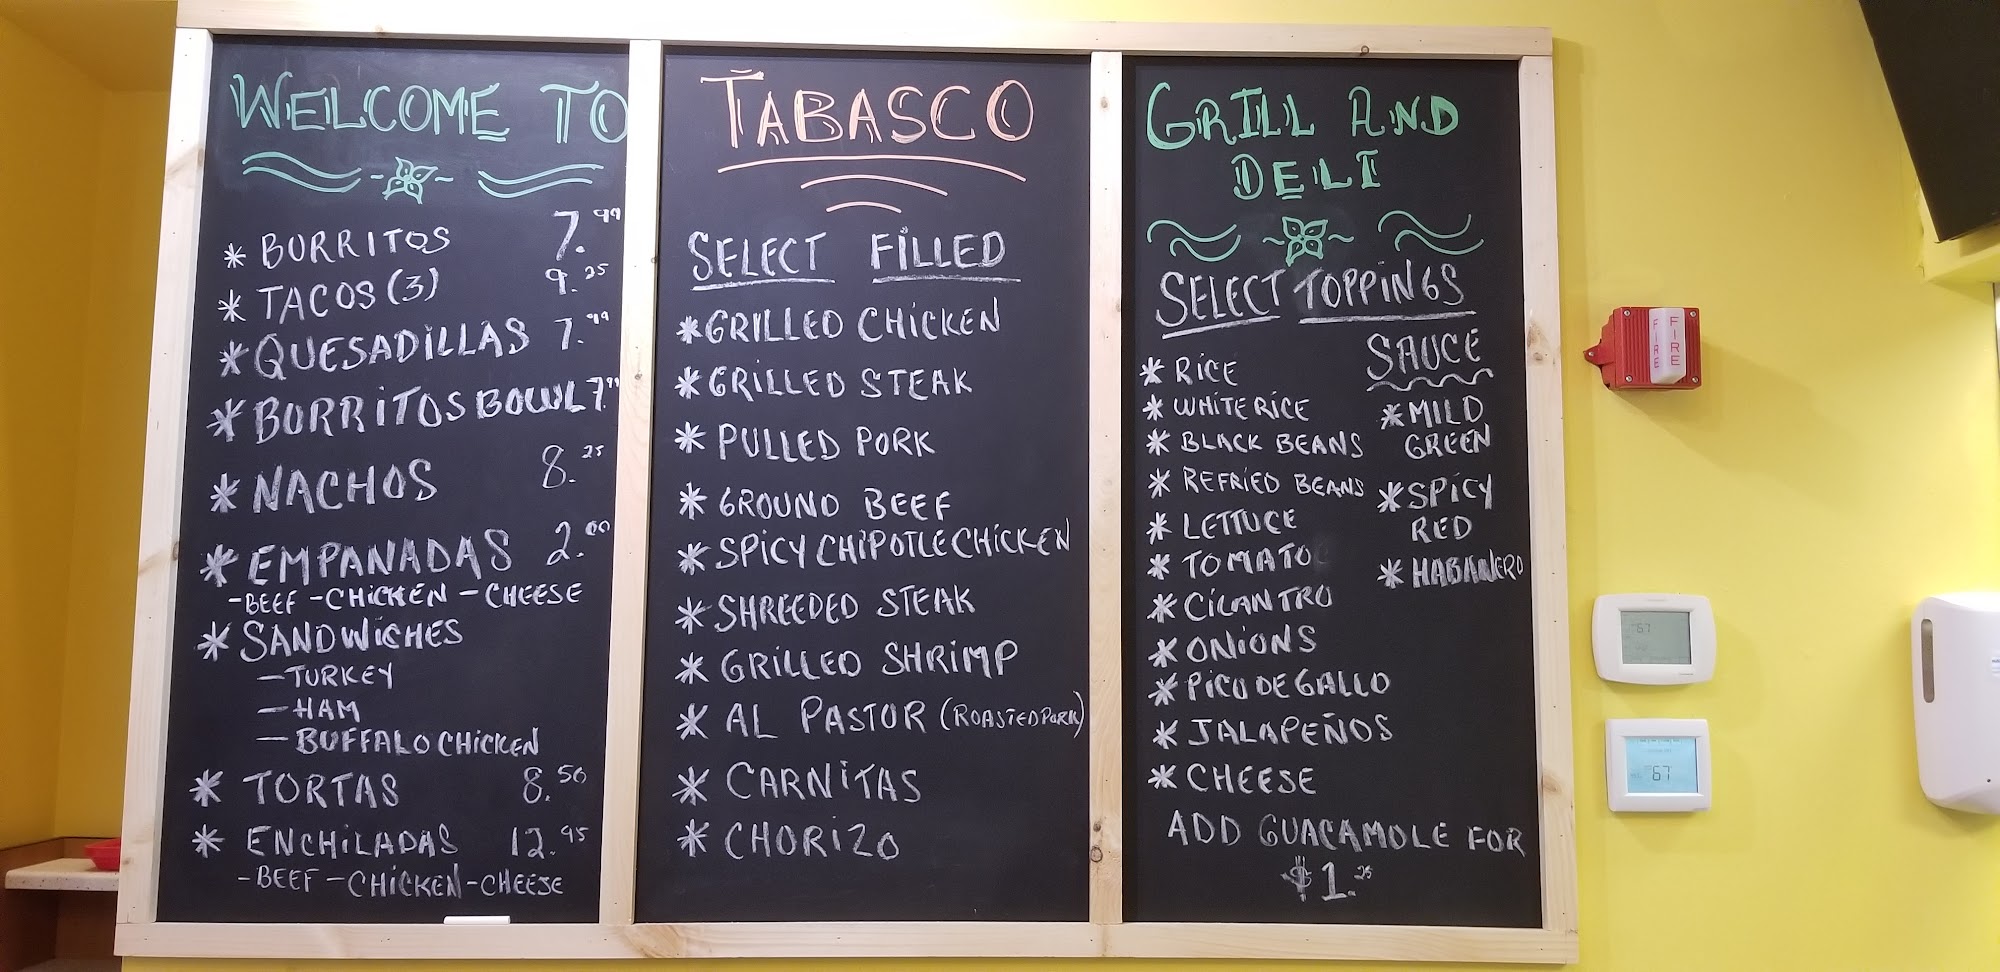 WELCOME TO
* BURRITOS 7.99
* TACOS (3) 9.25
* QUESADILLAS 7.99
* BURRITOS BOWL 7.99
* NACHOS 8.25
* EMPANADAS 2.00
-BEEF -CHICKEN -CHEESE
* SANDWICHES
-TURKEY
-HAM
-BUFFALO CHICKEN
* TORTAS 8.50
* ENCHILADAS 12.95
-BEEF -CHICKEN -CHEESE
TABASCO
SELECT FILLED
* GRILLED CHICKEN
* GRILLED STEAK
* PULLED PORK
* GROUND BEEF
* SPICY CHIPOTLE CHICKEN
* SHREEDED STEAK
* GRILLED SHRIMP
* AL PASTOR (ROASTED PORK)
* CARNITAS
* CHORIZO
GRILL AND
DELI
SELECT TOPPINGS
* RICE
* WHITE RICE
* BLACK BEANS
* REFRIED BEANS
* LETTUCE
* TOMATO
* CILANTRO
* ONIONS
* PICO DE GALLO
* JALAPEÑOS
* CHEESE
SAUCE
* MILD
GREEN
* SPICY
RED
* HABANERO
ADD GUACAMOLE FOR
$1.25
FIRE
FIRE
67
67